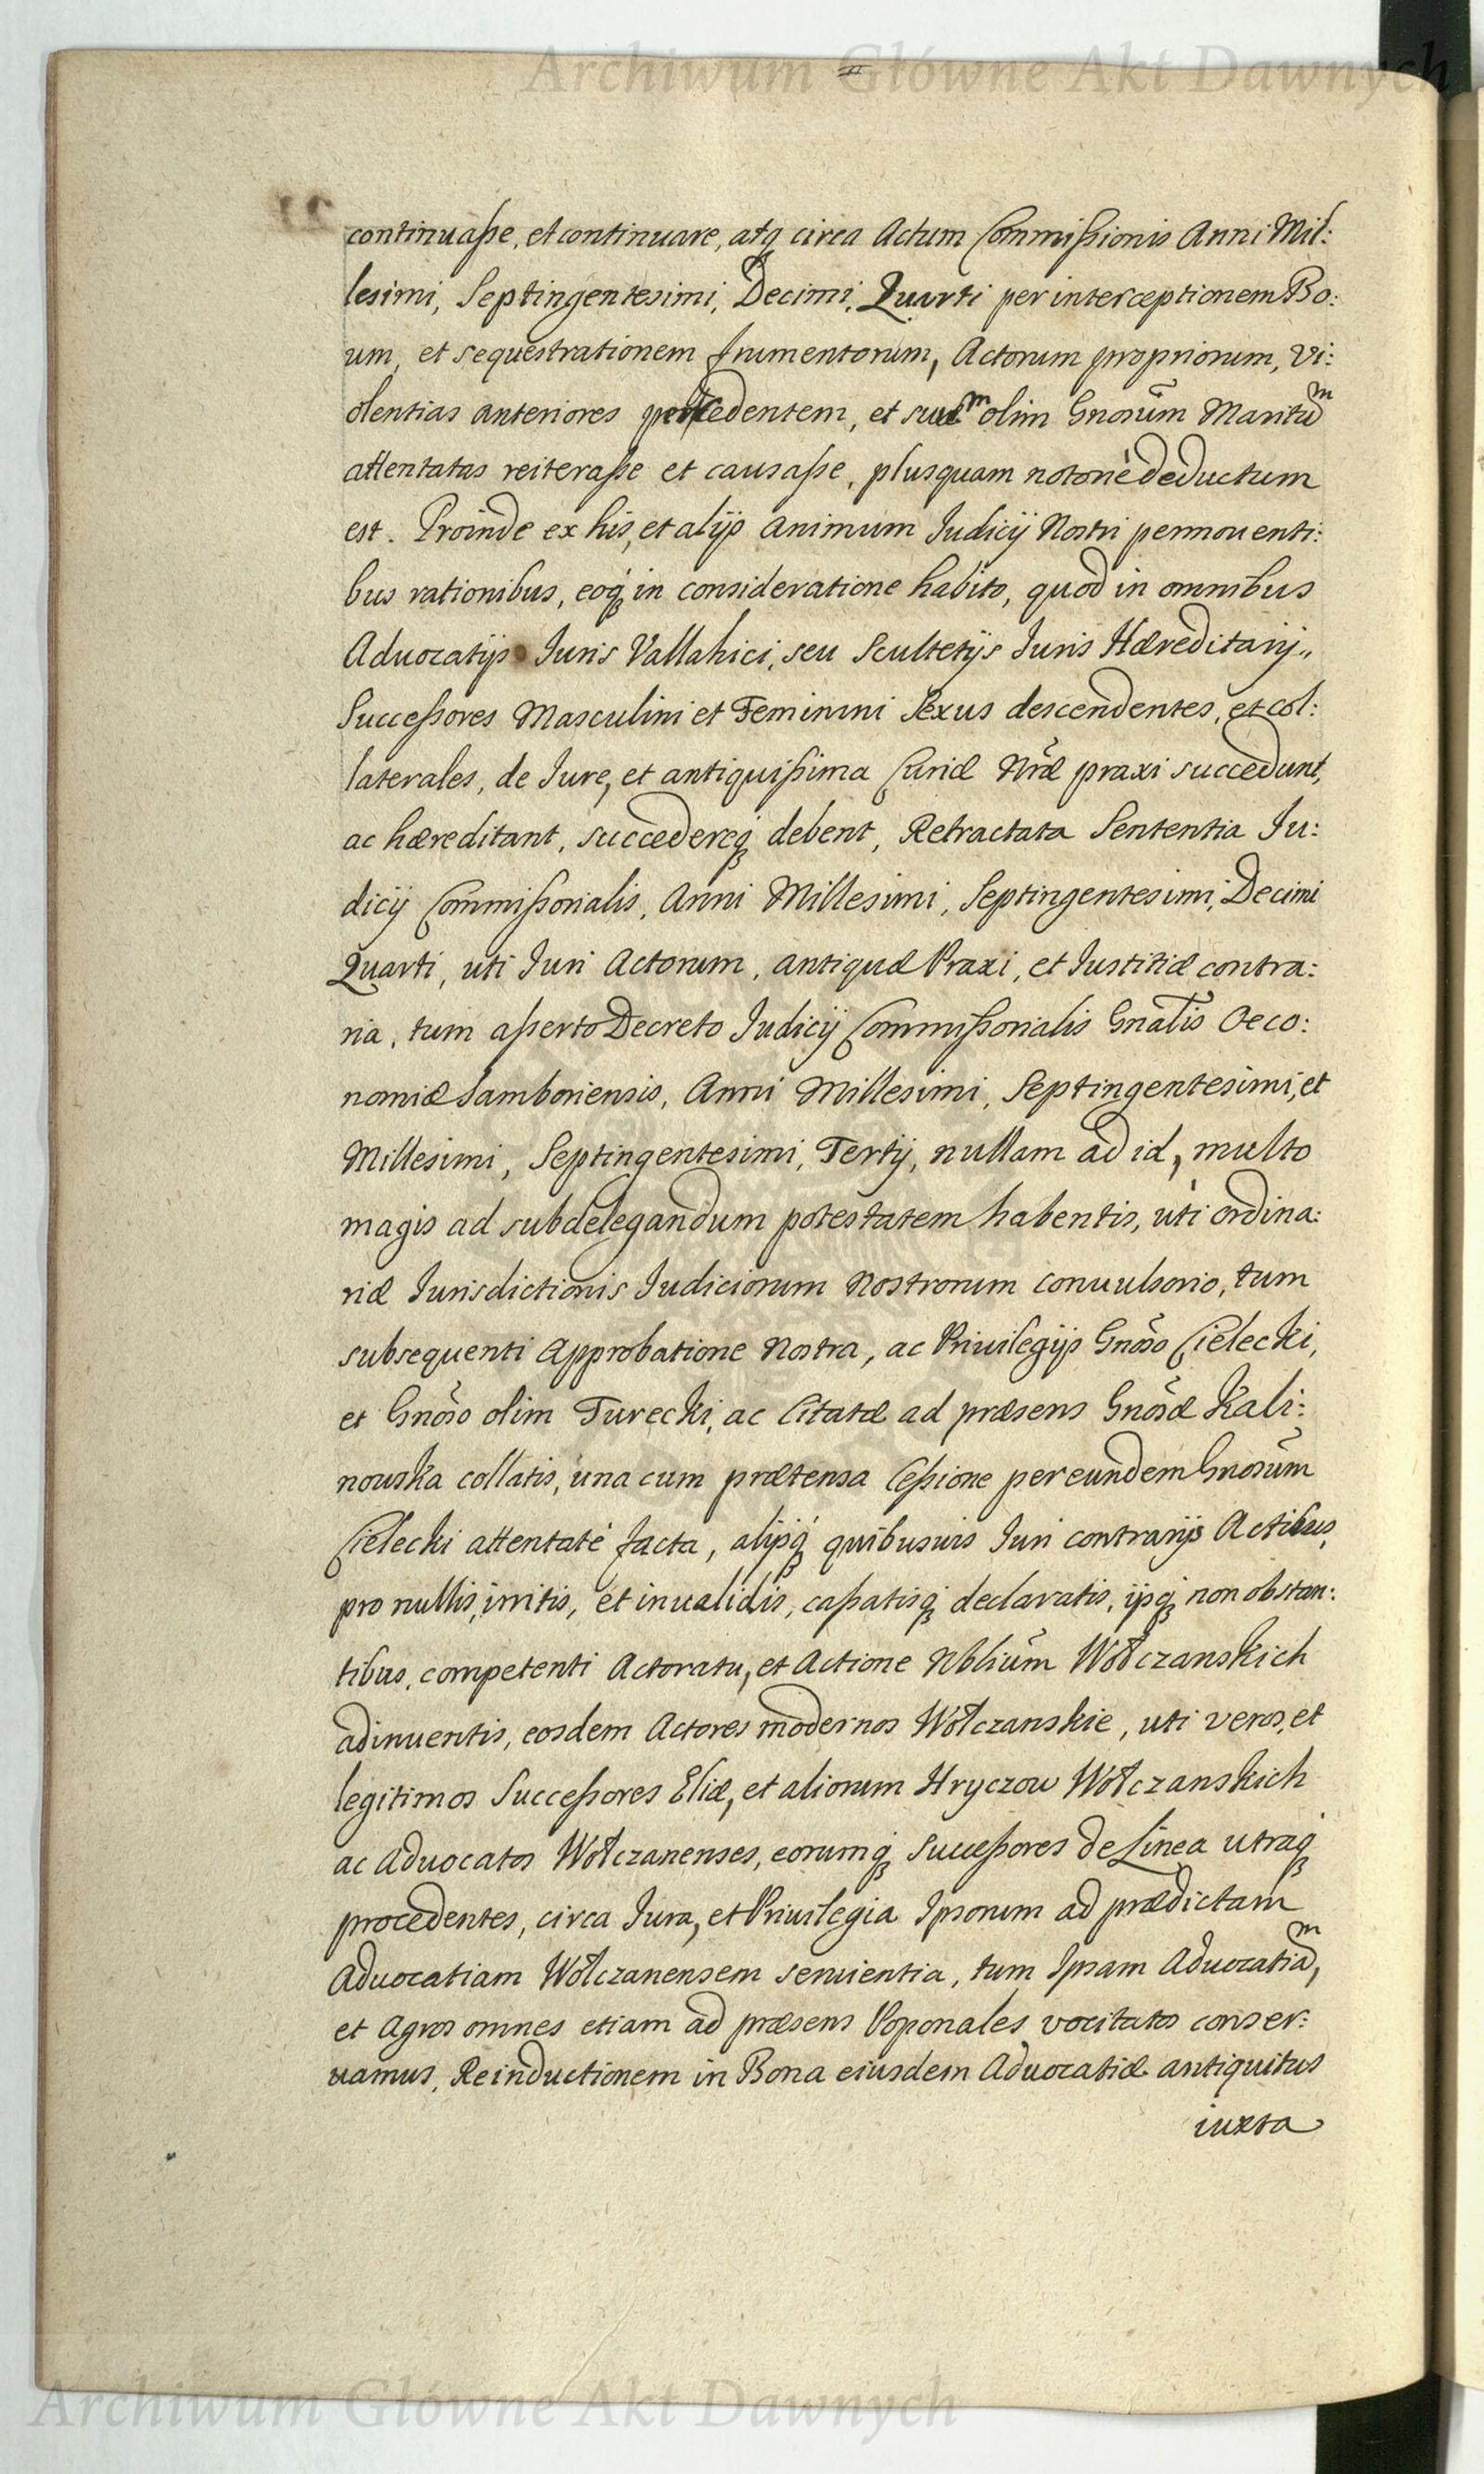 Archiwum Główne Akt Dawnych
continuaſse, et continuare, atq circa Actum Commiſsionis Anni Mil:
lesimi, Septingentesimi, Decimi, Quarti per interceptionem Bo:
um, et sequestrationem frumentorum, Actorum propriorum, vi:
olentias anteriores cedentem, et olim Gnosum̃ Maritum
attentatas reiteraſse et causaſse, plusquam notoriè deductum
est. Proinde ex his, et alijs animum Judicij Nostri permouenti:
bus rationibus, eoq in consideratione habito, quod in omnibus
Aduocatijs Juris Vallahici, seu Scultetijs Juris Hæreditarij,,
Succeſsores Masculini et Feminini Sexus descendentes, et col:
laterales, de Jure, et antiquiſsima Curiæ Nræ̃ praxi succedunt,
ac hæreditant, succedereq debent, Retractata Sententia Ju:
dicij Commiſsorialis, Anni Millesimi, Septingentesimi, Decimi
Quarti, uti Juri Actorum, antiquæ Praxi, et Justitiæ contra:
ria, tum aſserto Decreto Judicij Commiſsorialis Gnalis̃ Oeco:
nomiæ Samboriensis, Anni Millesimi, Septingentesimi, et
Millesimi, Septingentesimi, Tertij, nullam ad id, multo
magis ad subdelegandum potestatem habentis, uti ordina:
riæ Jurisdictionis Judiciorum Nostrorum conuulsorio, tum
subsequenti Approbatione Nostra, ac Priuilegijs Gnosõ Cielecki,
et Gnosõ olim Turecki, ac Citatæ ad præsens Gnosæ̃ Kali:
nowska collatis, una cum prætensa Ceſsione per eundem Gnosum̃
Cielecki attentatè facta, alijsq́ quibusuis Juri contrarijs Actibus,
pro nullis, irritis, et inualidis, caſsatisq declaratis, ijsq́ non obstan:
tibus, competenti Actoratu, et Actione Nblium̃ Wołczanskich
adinuentis, eosdem Actores modernos Wołczanskie, uti veros, et
legitimos Succeſsores Eliæ, et aliorum Hryczow Wołczanskich
ac Aduocatos Wołczanenses, eorumq́ Succeſsores de Linea utraq́
procedentes, circa Jura, et Priuilegia Ipsorum ad prædictam
Aduocatiam Wołczanensem seruientia, tum Ipsam Aduocatiam,
et Agros omnes etiam ad præsens Poponales vocitatos conser:
uamus, Reinductionem in Bona eiusdem Aduocatiæ antiquitus
iuxta
Archiwum Główne Akt Dawnych